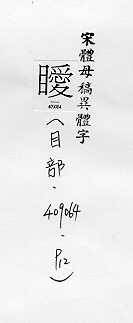 宋體母稿異體字
曖(目部.409064.P12)